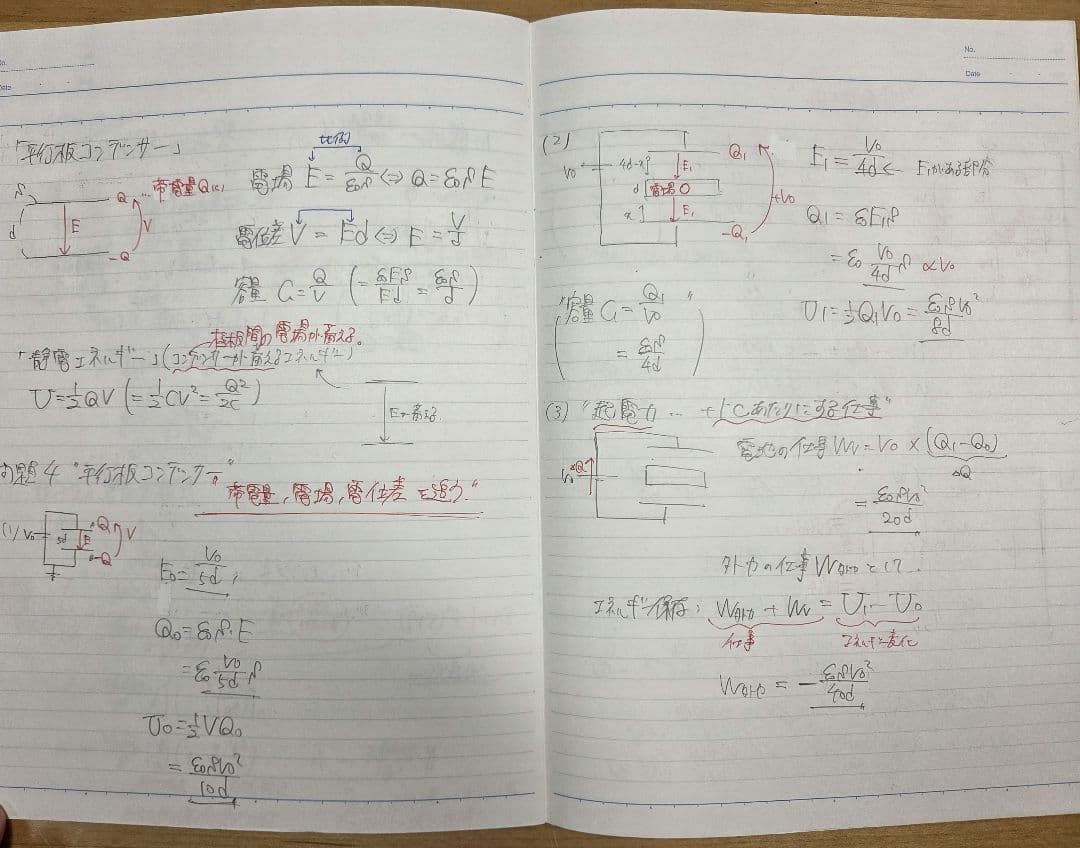 No.
Date
「平行板コンデンサー」
比例
S
d
E
Q
-Q
V
…帯電量Q(C)
電場 E = Q/ε₀S ⇔ Q = ε₀S E
電位差 V = Ed ⇔ E = V/d
容量 C = Q/V ( = ε₀ES/Ed = ε₀S/d )
極板間の電場が蓄える。
「静電エネルギー」(コンデンサーが蓄えるエネルギー)
U = ½QV ( = ½CV² = Q²/2C )
Eが蓄える
問題4 "平行板コンデンサー"
"帯電量, 電場, 電位差を追う"
(1)
V₀
5d
E
Q
-Q
V
E₀ = V₀/5d,
Q₀ = ε₀S・E
= ε₀ V₀/5d S
U₀ = ½VQ₀
= ε₀SV₀²/10d
No.
Date
(2)
V₀
4d-x
d
x
E₁
電場0
E₁
Q₁
-Q₁
+V₀
E₁ = V₀/4d ← E₁がある部分
Q₁ = ε₀E₁S
= ε₀ V₀/4d S ∝V₀
U₁ = ½Q₁V₀ = ε₀SV₀²/8d
"容量 C₁ = Q₁/V₀"
= ε₀S/4d
(3) "起電力… +1Cあたりにする仕事"
V₀
ΔQ
電池の仕事 Wv = V₀ × (Q₁-Q₀)
ΔQ
= ε₀SV₀²/20d
外力の仕事 W外力 として
エネルギー保存: W外力 + Wv = U₁ - U₀
仕事
エネルギー変化
W外力 = - ε₀SV₀²/40d